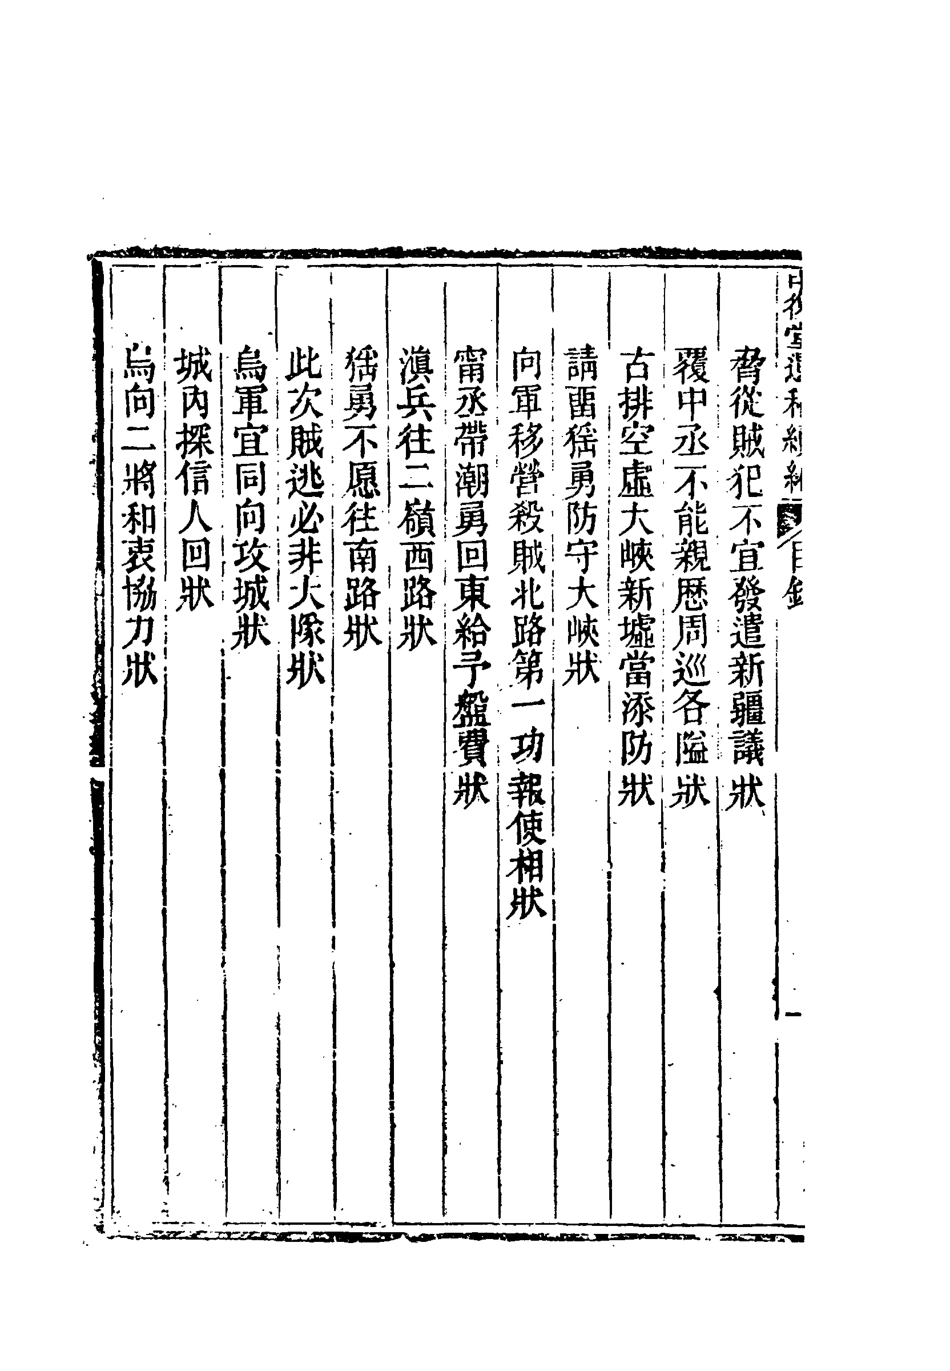 中復堂遺稿續編 目錄 一
脅從賊犯不宜發遣新疆議狀
覆中丞不能親歷周巡各隘狀
古排空虛大峽新墟當添防狀
請畱猺勇防守大峽狀
向軍移營殺賊北路第一功報使相狀
甯丞帶潮勇回東給予盤費狀
滇兵往二嶺西路狀
猺勇不愿往南路狀
此次賊逃必非大隊狀
烏軍宜同向攻城狀
城內探信人回狀
烏向二將和衷協力狀